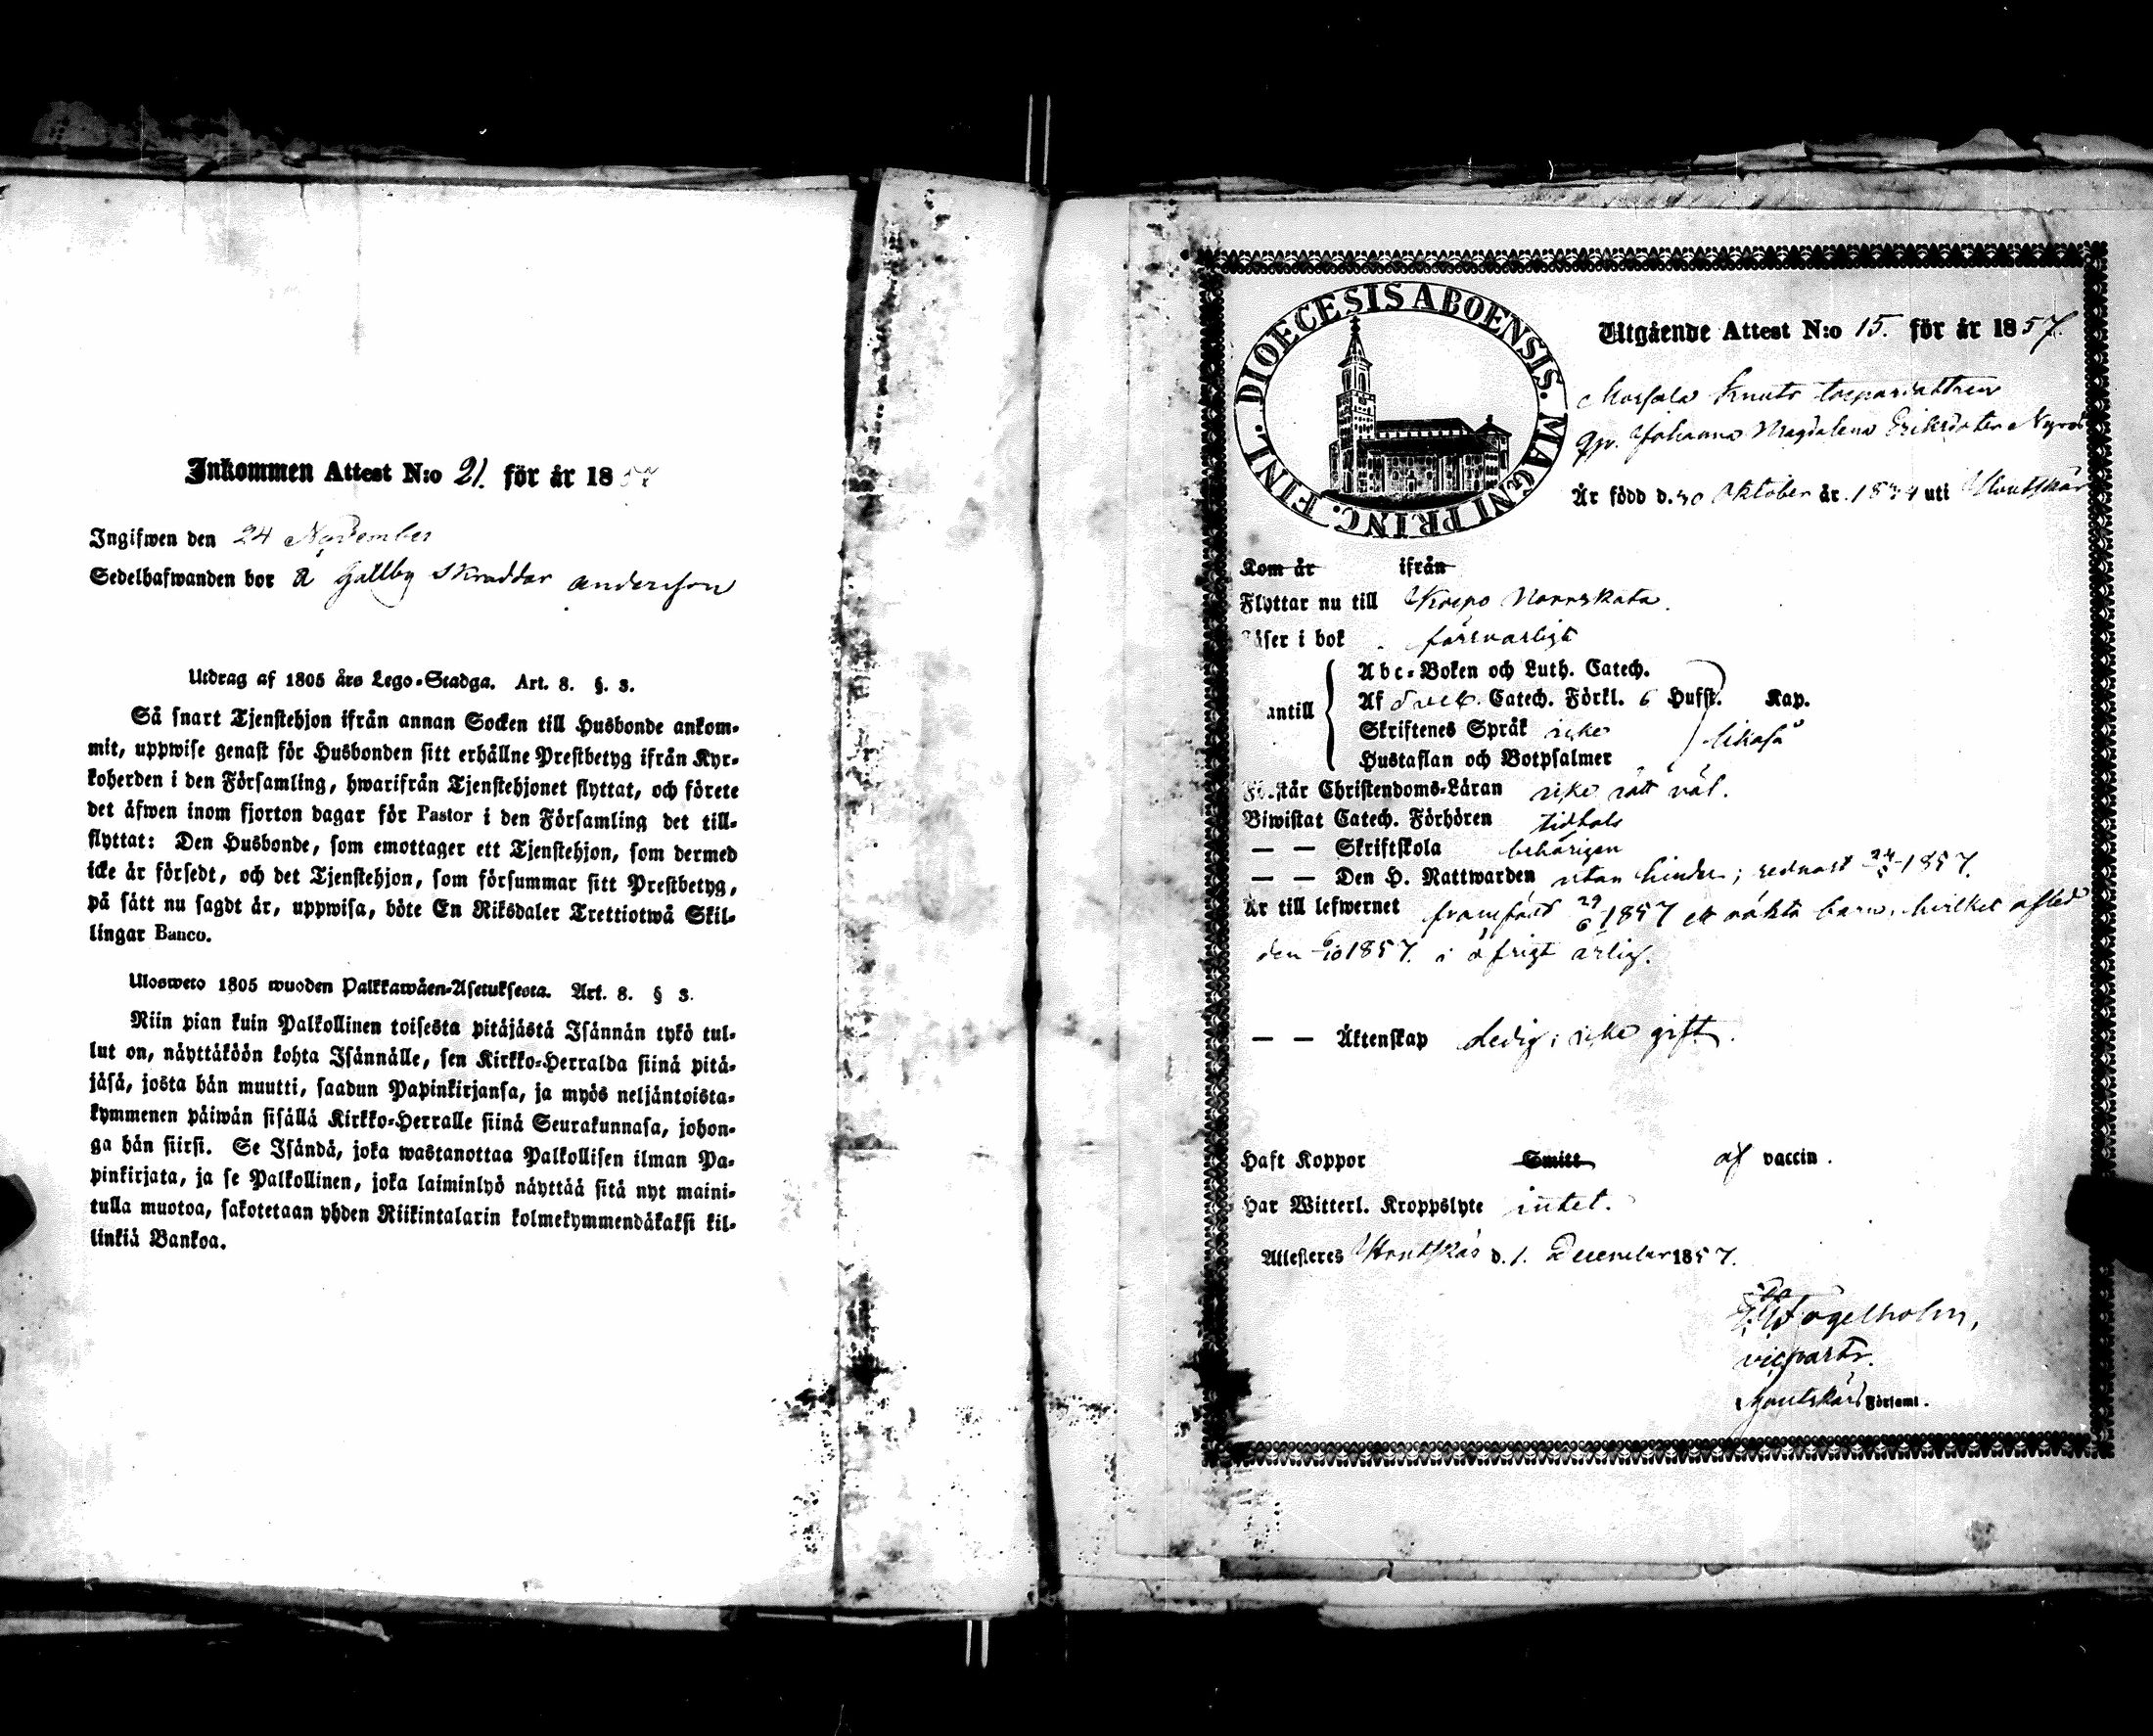 Inkommen Attest N:o 21. för år 1857
Ingifwen den 24 November
Sedelhafwanden bor å Gällby Skräddar Andersson
Utdrag af 1805 års Lego-Stadga. Art. 8. §. 3.
Så snart Tjenstehjon ifrån annan Socken till Husbonde ankom-
mit, uppwise genast för Husbonden sitt erhållne Prestbetyg ifrån Kyr-
koherden i den Församling, hwarifrån Tjenstehjonet flyttat, och förete
det äfwen inom fjorton dagar för Pastor i den Församling det till-
flyttat: Den Husbonde, som emottager ett Tjenstehjon, som dermed
icke är försedt, och det Tjenstehjon, som försummar sitt Prestbetyg,
på sätt nu sagdt är, uppwisa, böte En Riksdaler Trettiotwå Skil-
lingar Banco.
Ulosweto 1805 wuoden Palkkawäen-Asetuksesta. Art. 8. § 3.
Niin pian kuin Palkollinen toisesta pitäjästä Isännän tykö tul-
lut on, näyttäköön kohta Isännälle, sen Kirkko-Herralda siinä pitä-
jäsä, josta hän muutti, saadun Papinkirjansa, ja myös neljäntoista-
kymmenen päiwän sisällä Kirkko-Herralle siinä Seurakunnasa, johon-
ga hän siirsi. Se Isändä, joka wastanottaa Palkollisen ilman Pa-
pinkirjata, ja se Palkollinen, joka laiminlyö näyttää sitä nyt maini-
tulla muotoa, sakotetaan yhden Riikintalarin kolmekymmendäkaksi kil-
linkiä Bankoa.
DIOECESIS ABOENSIS. MAGNI PRINC. FINL.
Utgående Attest N:o 15. för år 1857.
Knuts torpardottren
Johanna Magdalena Eriksdotter
Är född d. 30 Oktober år 1834 uti Houtskär
Kom år ifrån
Flyttar nu till Korpo Norrskata.
Läser i bok försvarligt
antill
Abc-Boken och Luth. Catech.
Af Catech. Förkl. 6 Hufst. Kap.
Skriftenes Språk icke
Hustaflan och Botpsalmer likaså
Förstår Christendoms-Läran icke rätt väl.
Biwistat Catech. Förhören tidtals
— — Skriftskola behörigen
— — Den H. Nattwarden utan hinder; sednast 24/5 1857.
Är till lefwernet framfödt 29/6 1857 ett oäkta barn, hvilket afled
den 6/10 1857. i öfrigt ärlig.
— — Äktenskap Ledig; icke gift.
Haft Koppor Smitt af vaccin.
Har Witterl. Kroppslyte intet.
Attesteres Houtskär d. 1. December 1857.
Fogelholm,
vicepastor.
Houtskärs Församl.